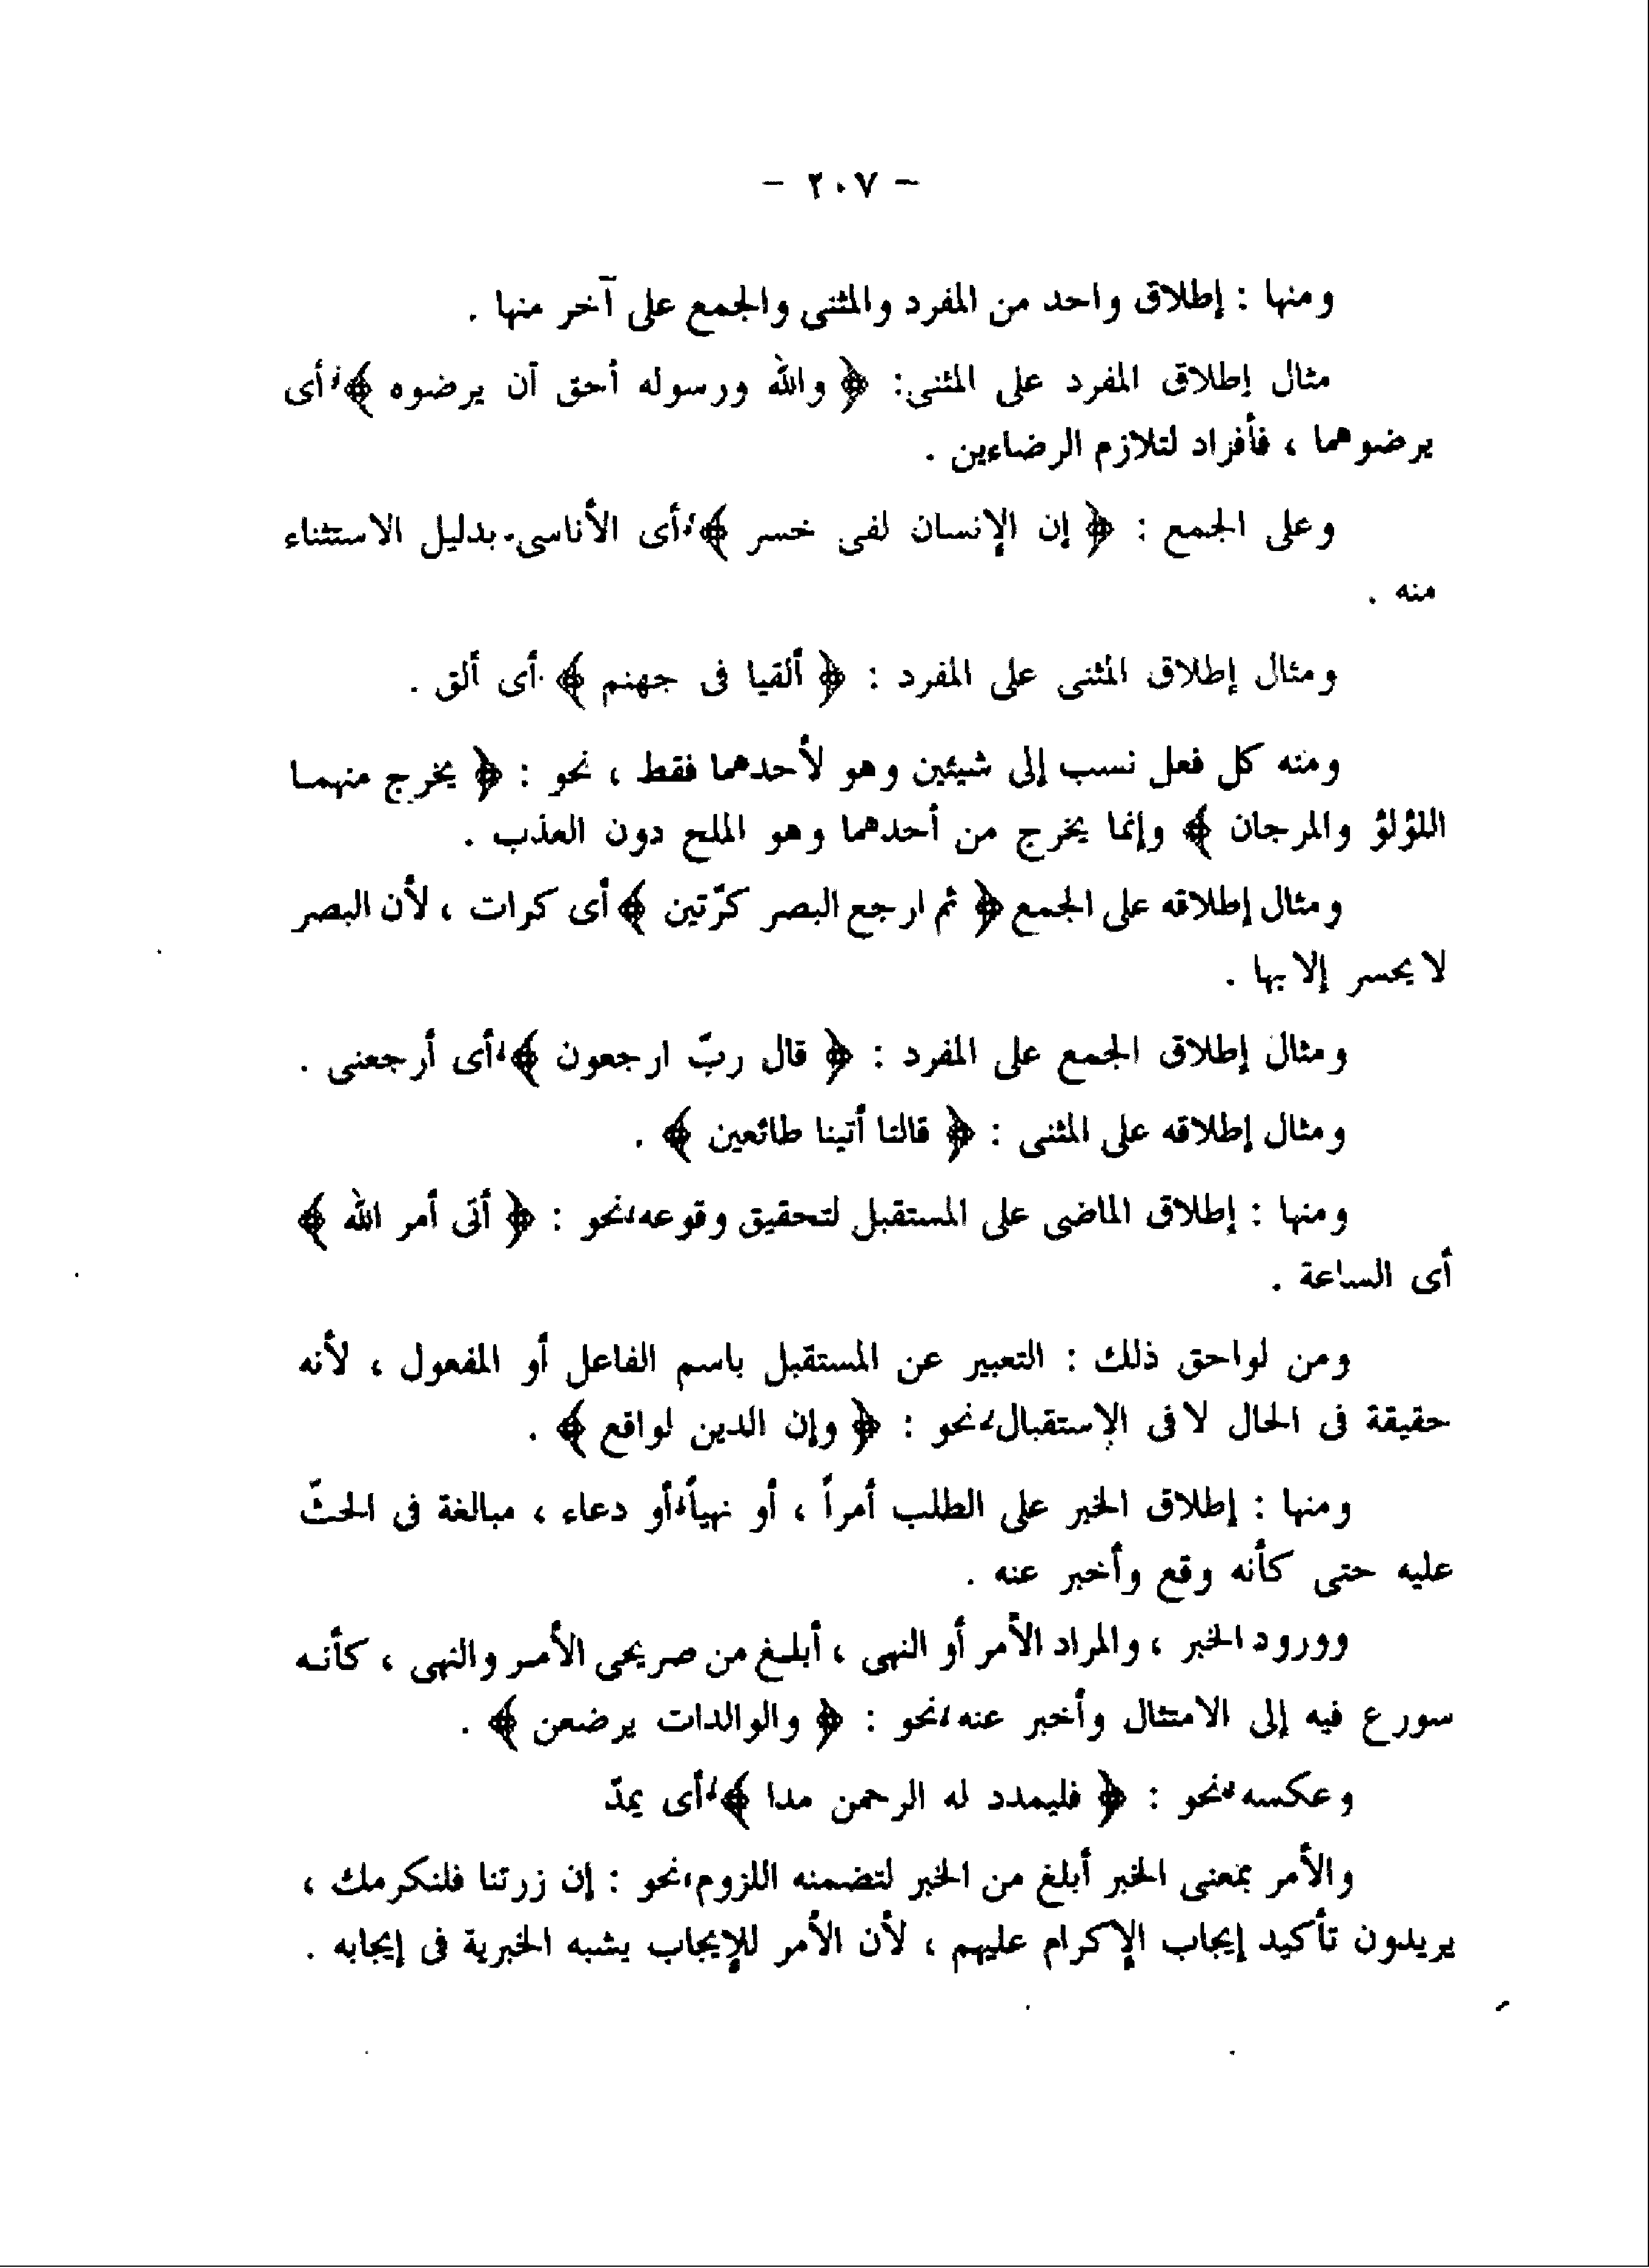 - ٢٠٧ -
ومنها : إطلاق واحد من المفرد والمثنى والجمع على آخر منها .
مثال إطلاق المفرد على المثنى: ﴿ والله ورسوله أحق أن يرضوه ﴾، أى
يرضوهما ، فأفراد لتلازم الرضاءين .
وعلى الجمع : ﴿ إن الإنسان لفى خسر ﴾، أى الأناسى. بدليل الاستثناء
منه .
ومثال إطلاق المثنى على المفرد : ﴿ ألقيا فى جهنم ﴾ أى ألق .
ومنه كل فعل نسب إلى شيئين وهو لأحدهما فقط ، نحو : ﴿ يخرج منهما
اللؤلؤ والمرجان ﴾ وإنما يخرج من أحدهما وهو الملح دون العذب .
ومثال إطلاقه على الجمع ﴿ ثم ارجع البصر كرّتين ﴾ أى كرات ، لأن البصر
لا يحسر إلا بها .
ومثال إطلاق الجمع على المفرد : ﴿ قال ربّ ارجعون ﴾، أى أرجعنى .
ومثال إطلاقه على المثنى : ﴿ قالتا أتينا طائعين ﴾ .
ومنها : إطلاق الماضى على المستقبل لتحقيق وقوعه، نحو : ﴿ أتى أمر الله ﴾
أى الساعة .
ومن لواحق ذلك : التعبير عن المستقبل باسم الفاعل أو المفعول ، لأنه
حقيقة فى الحال لا فى الإستقبال، نحو : ﴿ وإن الدين لواقع ﴾ .
ومنها : إطلاق الخبر على الطلب أمراً ، أو نهياً، أو دعاء ، مبالغة فى الحثّ
عليه حتى كأنه وقع وأخبر عنه .
وورود الخبر ، والمراد الأمر أو النهى ، أبلغ من صريحى الأمر والنهى ، كأنه
سورع فيه إلى الامتثال وأخبر عنه، نحو : ﴿ والوالدات يرضعن ﴾ .
وعكسه، نحو : ﴿ فليمدد له الرحمن مدا ﴾، أى يمدّ
والأمر بمعنى الخبر أبلغ من الخبر لتضمنه اللزوم، نحو : إن زرتنا فلنكرمك ،
يريدون تأكيد إيجاب الإكرام عليهم ، لأن الأمر للإيجاب يشبه الخبرية فى إيجابه .